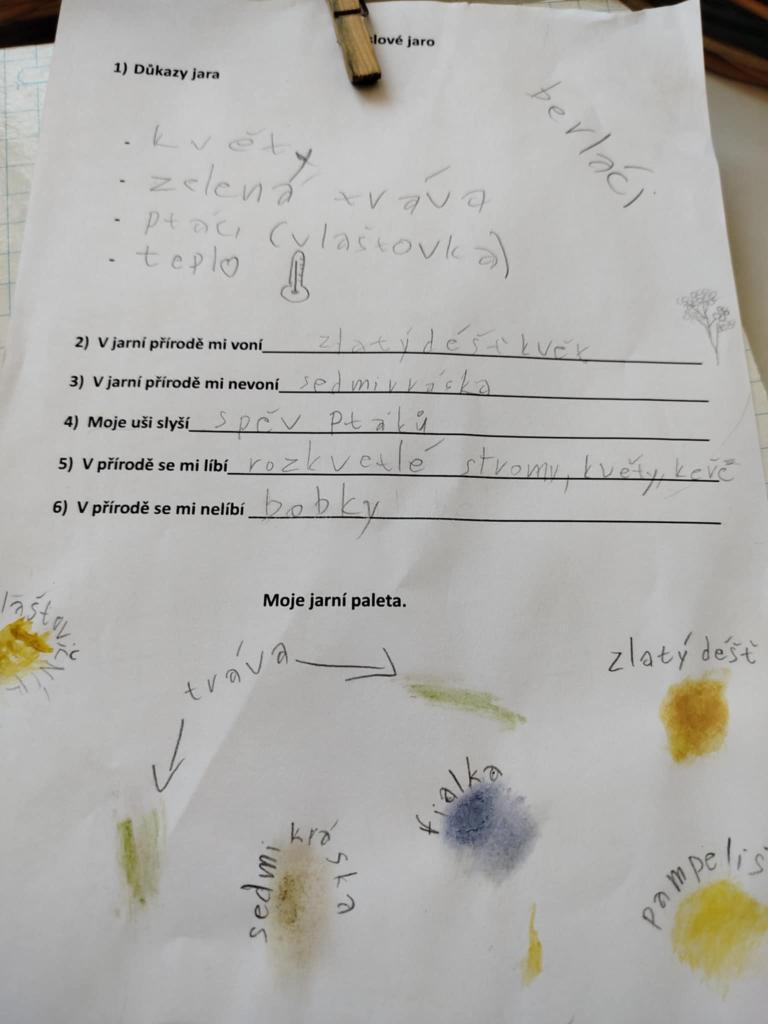 lové jaro
1) Důkazy jara
berláči
- květy
- zelená tráva
- ptáci (vlaštovka)
- teplo
2) V jarní přírodě mi voní zlatý déšť květ
3) V jarní přírodě mi nevoní sedmikráska
4) Moje uši slyší spěv ptáků
5) V přírodě se mi líbí rozkvetlé stromy, květy, keře
6) V přírodě se mi nelíbí bobky
Moje jarní paleta.
tráva
zlatý déšť
fialka
sedmikráska
pampeliš